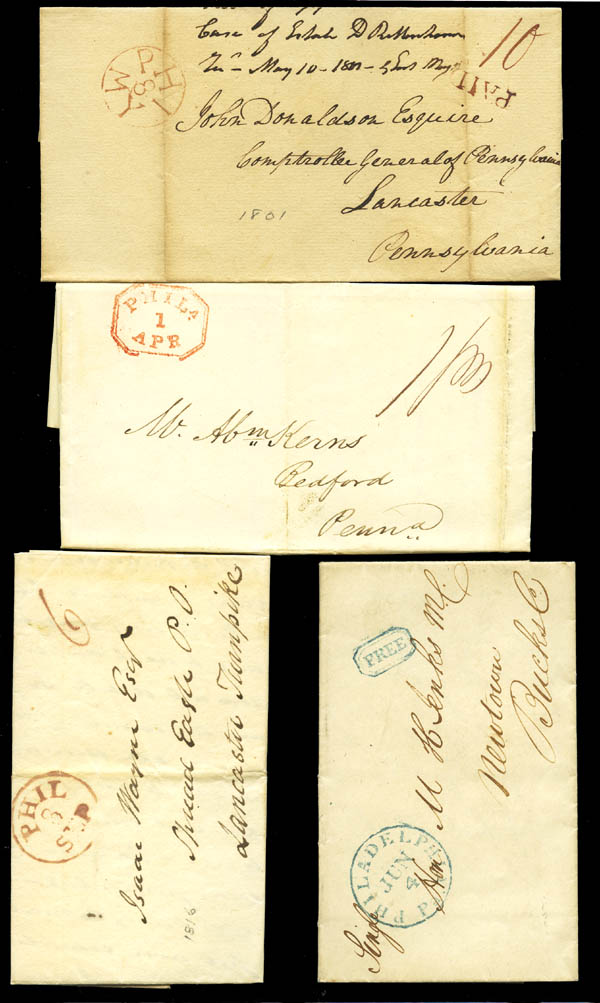 Case of Estate D Rittenhouse
May 10 - 1801 -
PHI
8
MY
10
PAID
John Donaldson Esquire
Comptroller General of Pennsylvania
Lancaster
Pennsylvania
1801
PHILA
1
APR
Mr. Abm Kerns
Bedford
Penna
6
PHIL
8
SEP
Isaac Wayne Esqr
Spread Eagle P.O.
Lancaster Turnpike
1816
FREE
PHILADELPHIA Pa
JUN
4
Hon M H Jenks M.C.
Newtown
Bucks Co